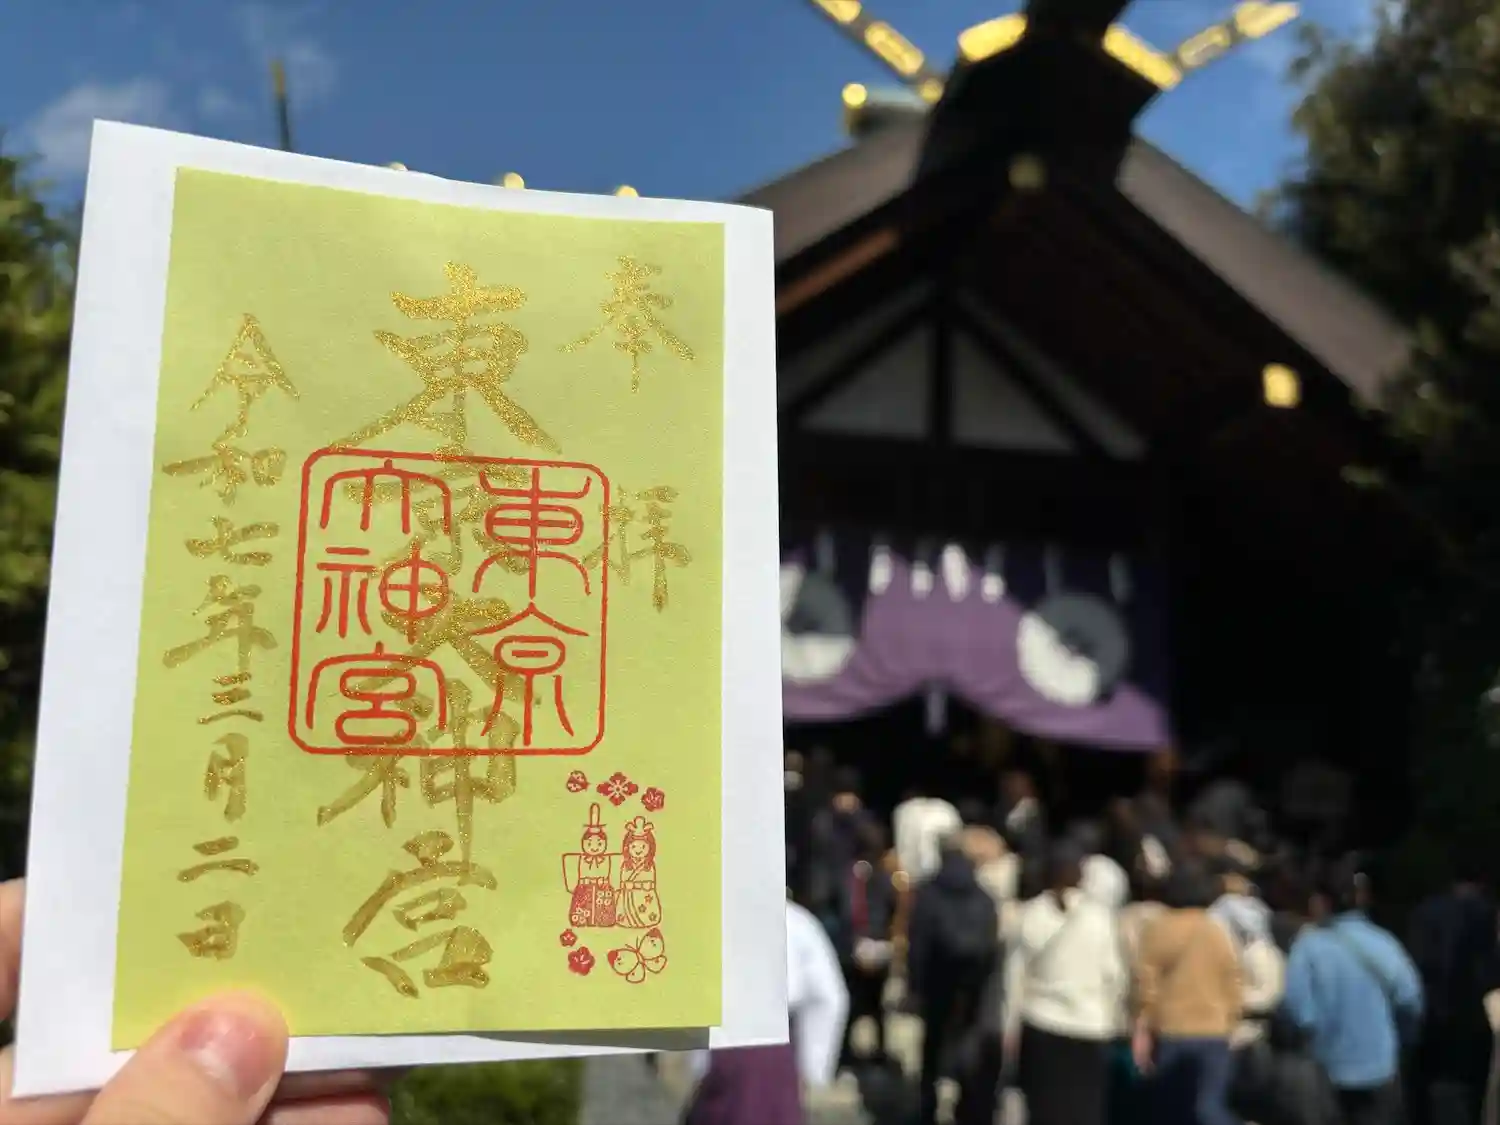 奉拝
東京大神宮
東京
大神宮
令和七年三月二日